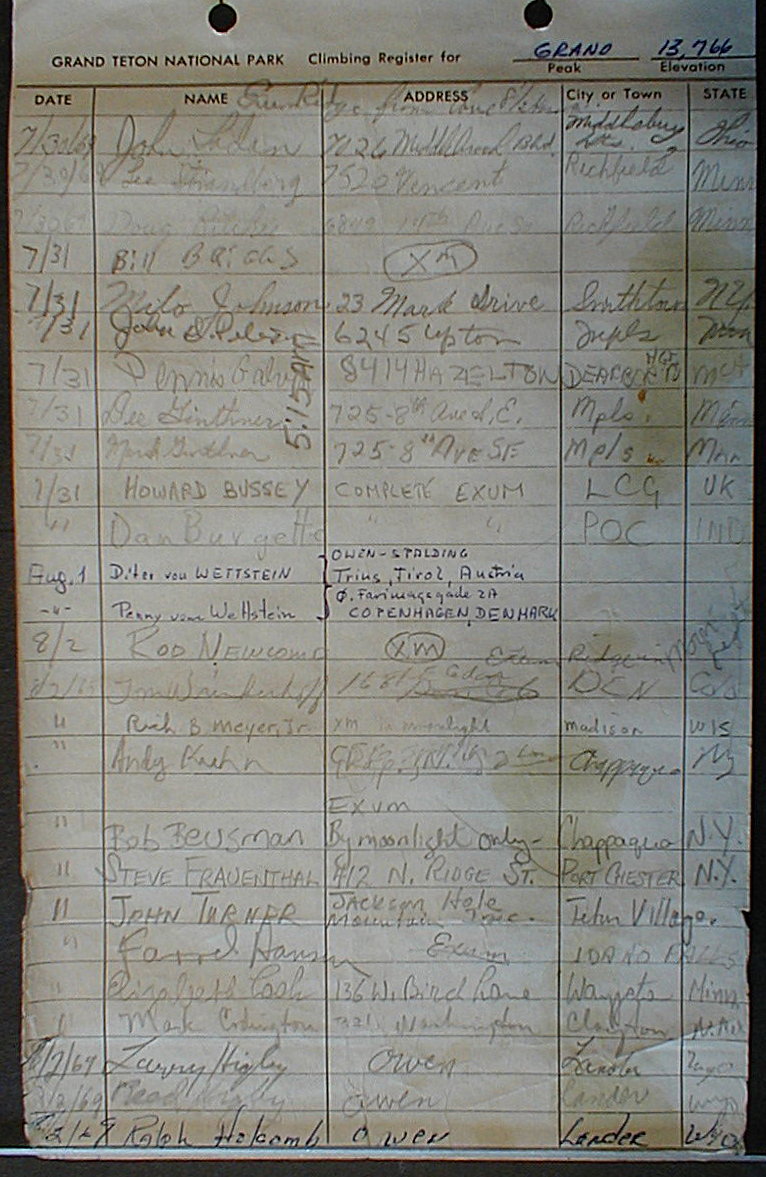 GRAND TETON NATIONAL PARK Climbing Register for GRAND 13,766
Peak Elevation
DATE NAME ADDRESS City or Town STATE
7/30/69 John 7026 Middlebrook Blvd. Middleburg Hts. Ohio
7/30/69 Lee Strandberg 7520 Vincent Richfield Minn
Doug 14th Ave So Richfield Minn
7/31 Bill BRiGGS XM
7/31 Milo Johnson 23 Mark Drive Smithtown N.Y.
7/31 John 6245 Upton Mpls Minn
7/31 Dennis 8414 HAZELTON DEARBORN HGTS MICH
5:15 AM
7/31 Dee Ginthner 725-8th Ave S.E. Mpls. Minn
7/31 Mark Ginthner 725-8th AVE SE Mpls Minn
7/31 HOWARD BUSSEY COMPLETE EXUM LCG UK
" Dan Burgette " " POC IND
OWEN-SPALDING
Aug. 1 Diter von WETTSTEIN Trins, Tirol, Austria
-"- Penny von Wettstein Ø. Farimagsgade 2A
COPENHAGEN, DENMARK
8/2 ROD NEWCOMB XM
Exum Ridge in moonlight
8/2/69 Tom 1681 DEN Colo
" Rich B Meyer, Jr. XM in moonlight madison WIS
" Andy Kaehn Chappaqua NY
EXUM
" Bob BEUSMAN By moonlight only- Chappaqua N.Y.
" STEVE FRAUENTHAL 412 N. RIDGE ST. PORT CHESTER N.Y.
" JOHN TURNER JACKSON Hole Mountain Inc. Teton Village.
" Farrel Hansen Exum IDAHO FALLS
" Elizabeth Cash 136 W. Birch Lane Wayzata Minn
" Mark Codington 7321 Washington Clayton
8/2/69 Larry Higby Owen Lander Wyo
8/2/69 Read Higby Owen Lander Wyo
8/2/69 Ralph Holcomb Owen Lander Wyo